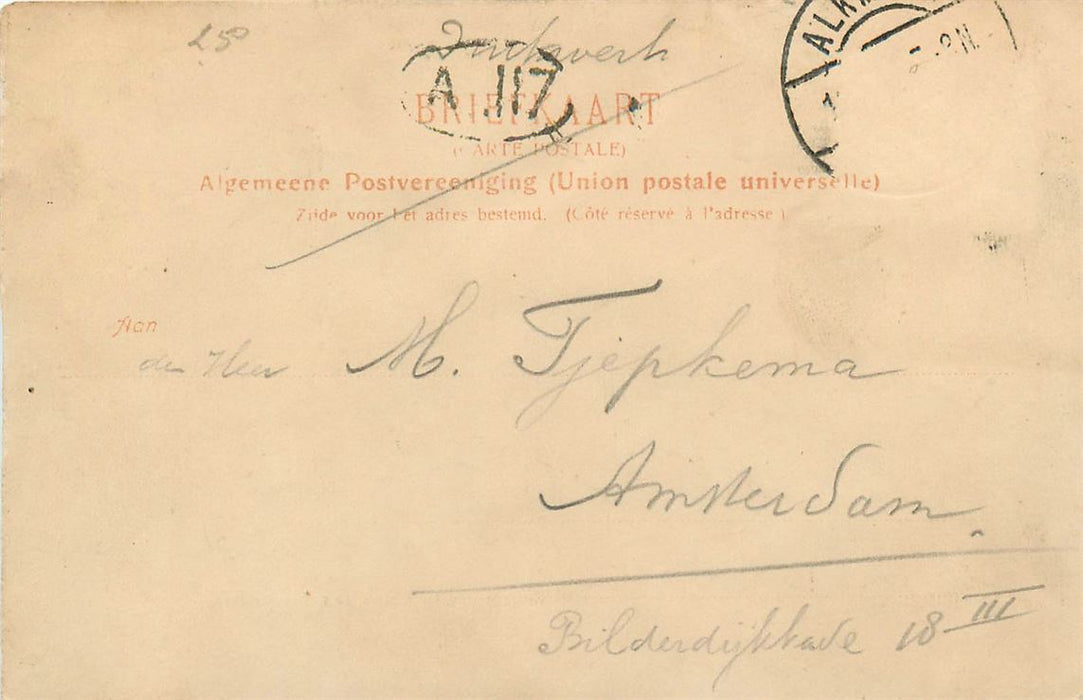 250
Drukwerk
ALK
8-9N
A 117
BRIEFKAART
(CARTE POSTALE)
Algemeene Postvereeniging (Union postale universelle)
Zijde voor het adres bestemd. (Côté réservé à l'adresse)
Aan
den Heer M. Tjepkema
Amsterdam.
Bilderdijkkade 18 III